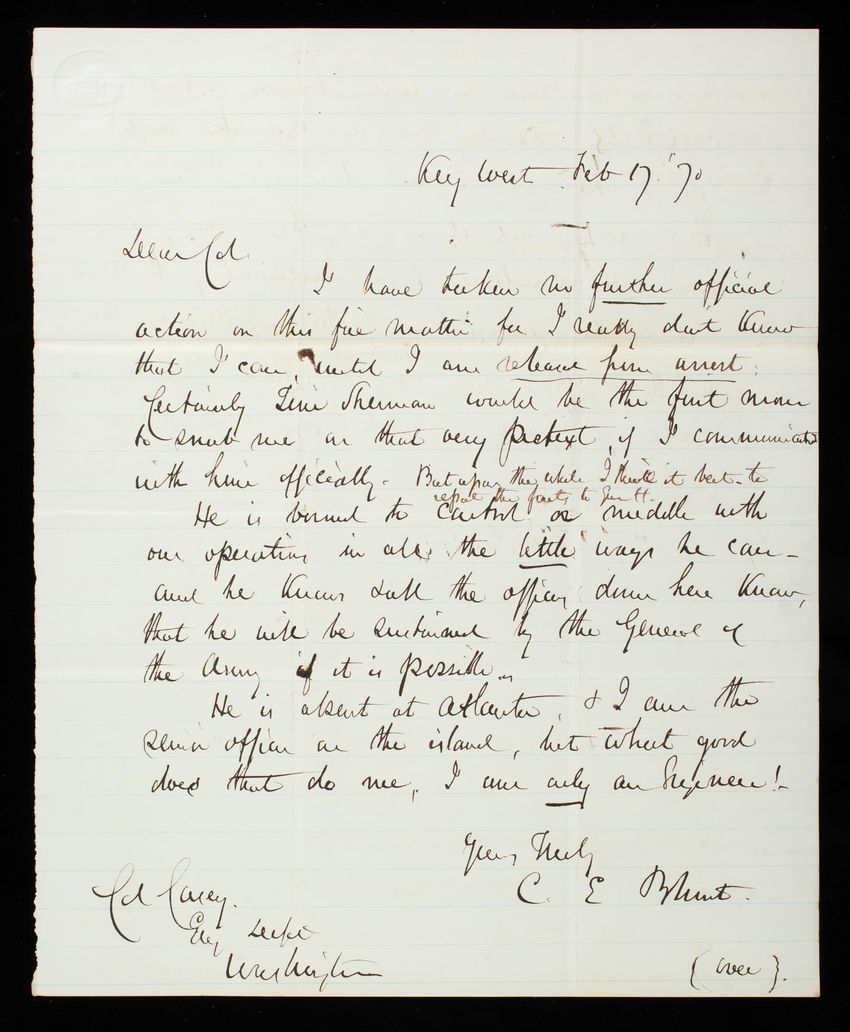 Key West Feb 17. '70
Dear Col.
I have taken no further official
action on this fire matter for I really don't know
that I can, until I am release from arrest.
Certainly Tim Sherman would be the first man
to snub me on that very pretext, if I communicated
with him officially. But upon the whole I think it best to
report the facts to Gen H.
He is bound to control or meddle with
our operations in all the little ways he can -
and he knows & all the officers down here know,
that he will be sustained by the General of
the Army if it is possible.
He is absent at Atlanta, & I am the
senior officer on the island, but what good
does that do me, I am only an Engineer! -
Yours Truly
C. E Blunt.
Col Casey.
Eng Dept
Washington
(over).